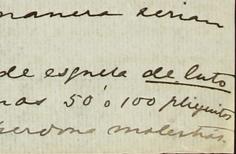 manera serian
de esquela de luto
mas 50 ó 100 pliguitos
perdona molestias